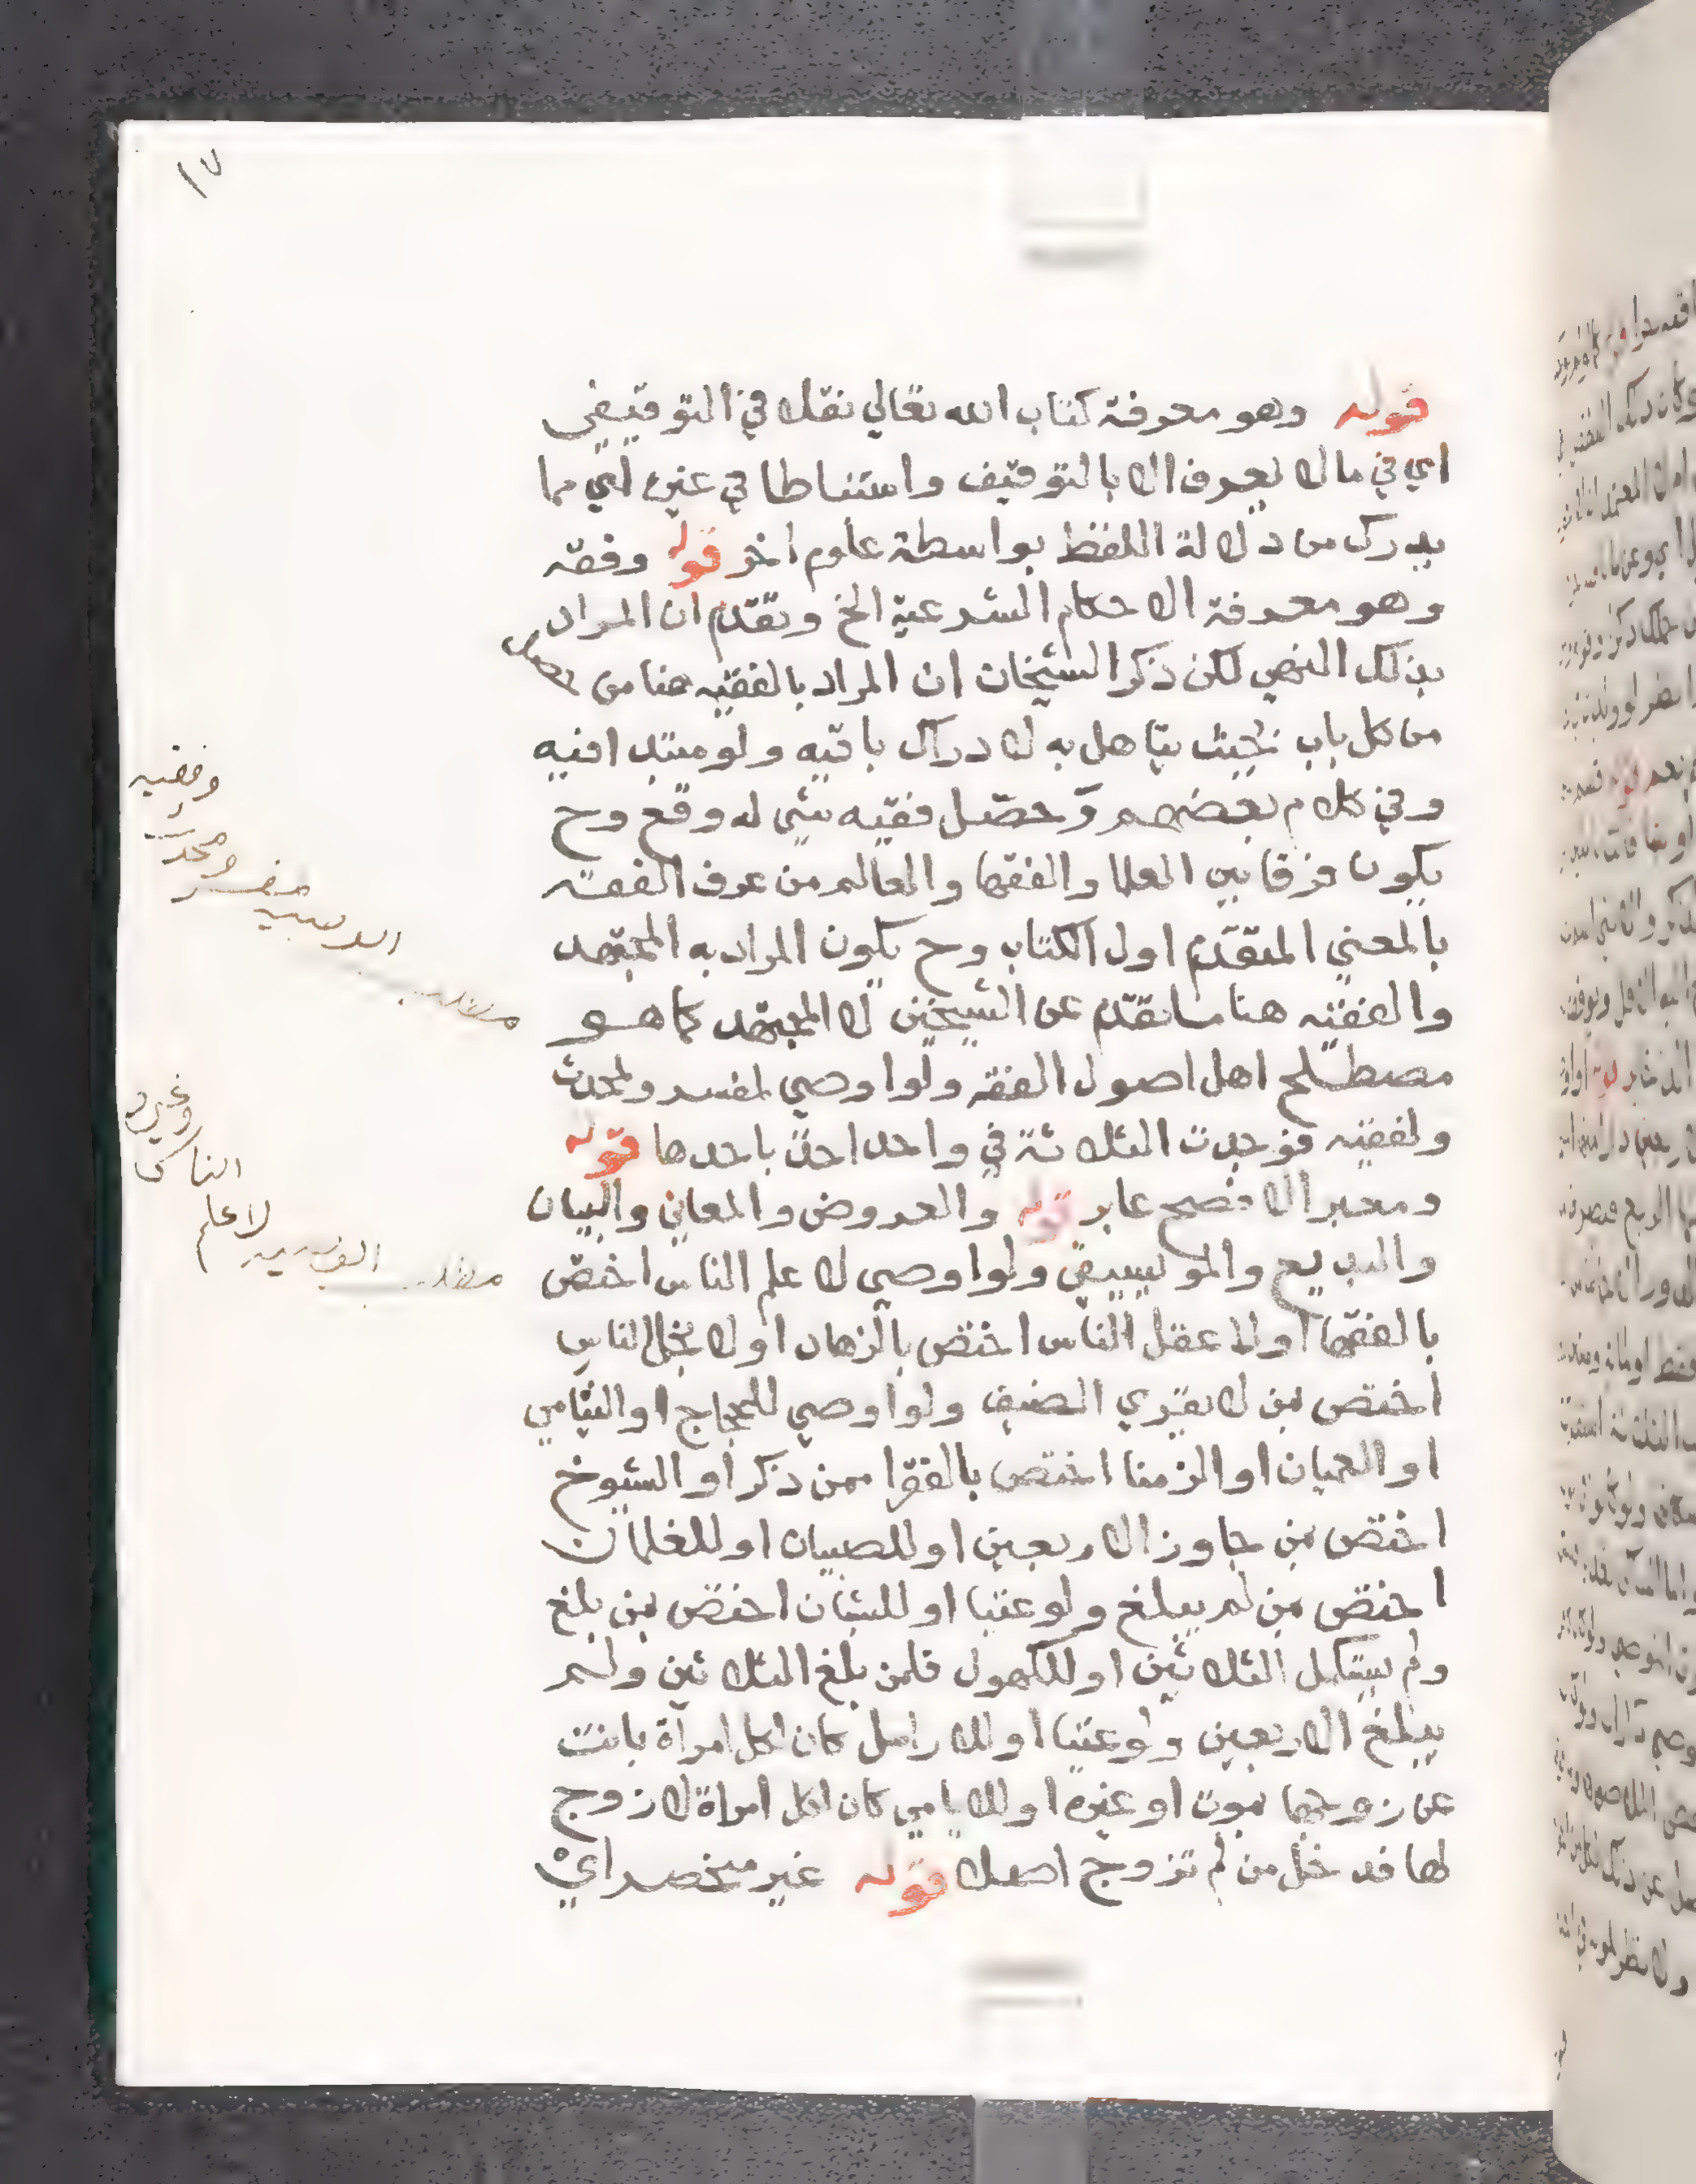 ١٧
قوله وهو معرفة كتاب الله تعالي نقلا في التوقيفي
اي في ما لا يعرف الا بالتوقيف واستنباطا في غيره اي مما
يدرك من دلالة اللفظ بواسطة علوم اخر قوله وفقه
وهو معرفة الاحكام الشرعية الخ وتقدم ان المراد
بذلك التهي لكن ذكر الشيخان ان المراد بالفقيه هنا من حصل
من كل باب بحيث يتاهل به لادراك باقيه ولو مبتدافيه
وفي كلام بعضهم وحصل فقيه شي له وقع وح
يكون فرقا بين العلما والفقها والعالم من عرف الفقه
بالمعني المتقدم اول الكتاب وح يكون المراد به المجتهد
والفقيه هنا ما تقدم عن الشيخين لا المجتهد كما هو
مصطلح اهل اصول الفقه ولو اوصي لمفسر ولمحدث
ولفقيه فوجدت الثلاثة في واحد اخذ باحدها قوله
ومعبر الافصح عابر قوله والعروض والمعاني والبيان
والبديع والموسيقي ولو اوصي لاعلم الناس اختص
بالفقها او لاعقل الناس اختص بالزهاد او لابخل الناس
اختص بمن لا يقري الضيف ولو اوصي للحجاج او اليتامي
او العميان او الزمنا اختص بالفقرا ممن ذكر او الشيوخ
اختص بمن جاوز الاربعين او للصبيان او للغلمان
اختص بمن لم يبلغ ولو غنيا او للشبان اختص بمن بلغ
ولم يستكمل الثلاثين او للكهول فلمن بلغ الثلاثين ولم
يبلغ الاربعين ولو غنيا او للارامل كان لكل امراة بانت
عن زوجها بموت او غيره او للايامي كان لكل امراة لا زوج
لها فدخل من لم تزوج اصلا قوله غير منحصر اي
مطلب
الوصية
لمفسر
ومحدث
وفقيه
مطلب الوصية
لاعلم
الناس
وغيره